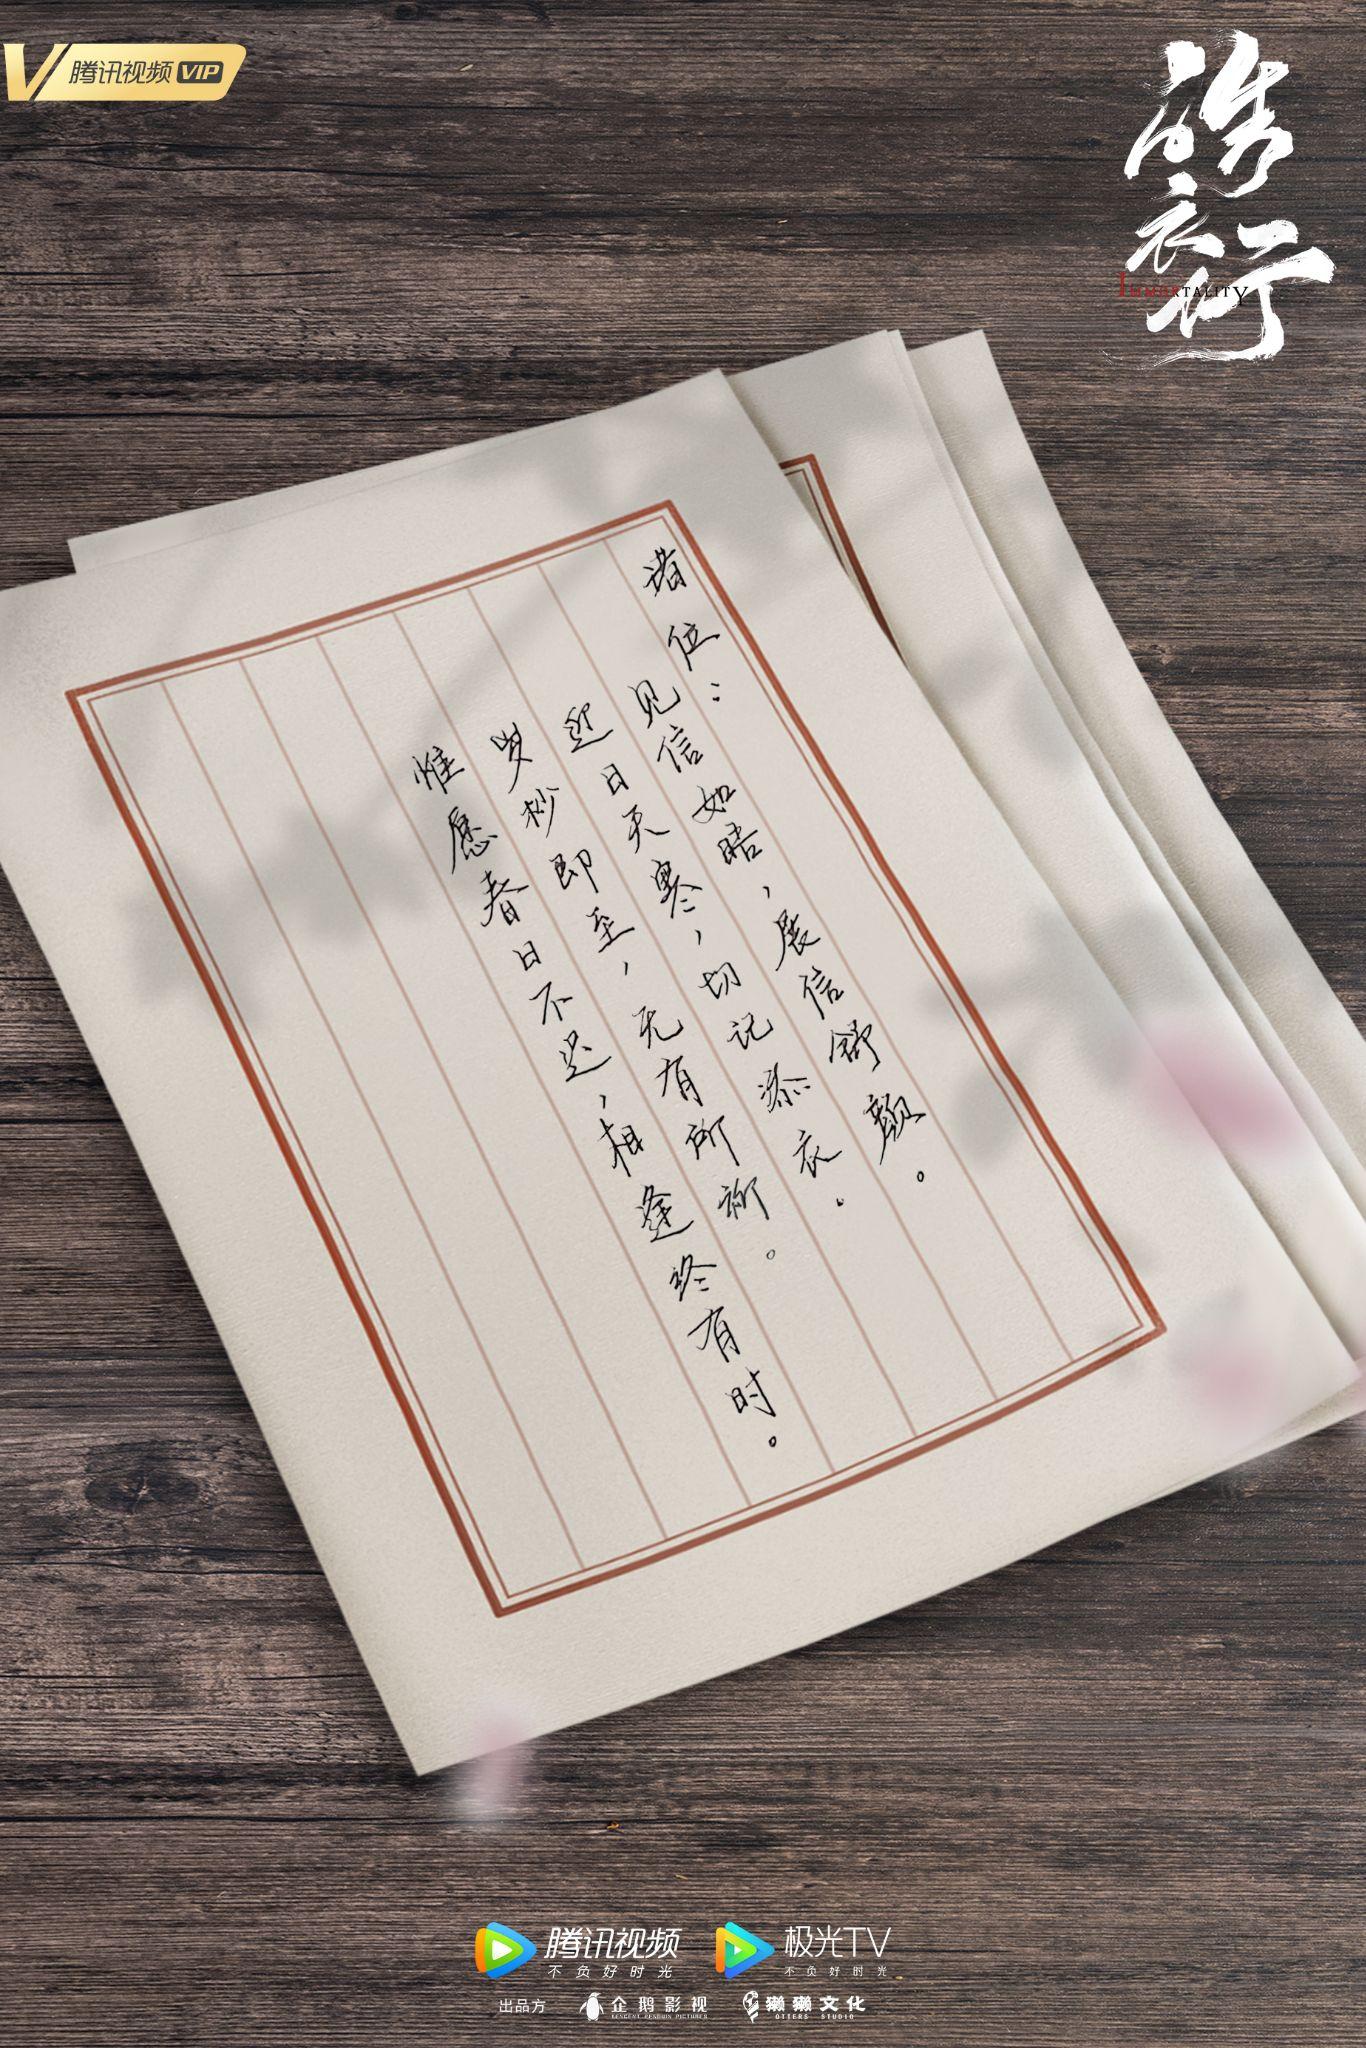 腾讯视频 VIP
皓衣行
IMMORTALITY
诸位：
见信如晤，展信舒颜。
近日天寒，切记添衣。
岁杪即至，无有所祈。
惟愿春日不迟，相逢终有时。
腾讯视频 极光TV
不负好时光 不负好时光
出品方 企鹅影视 獭獭文化
TENCENT PENGUIN PICTURES OTTERS STUDIO